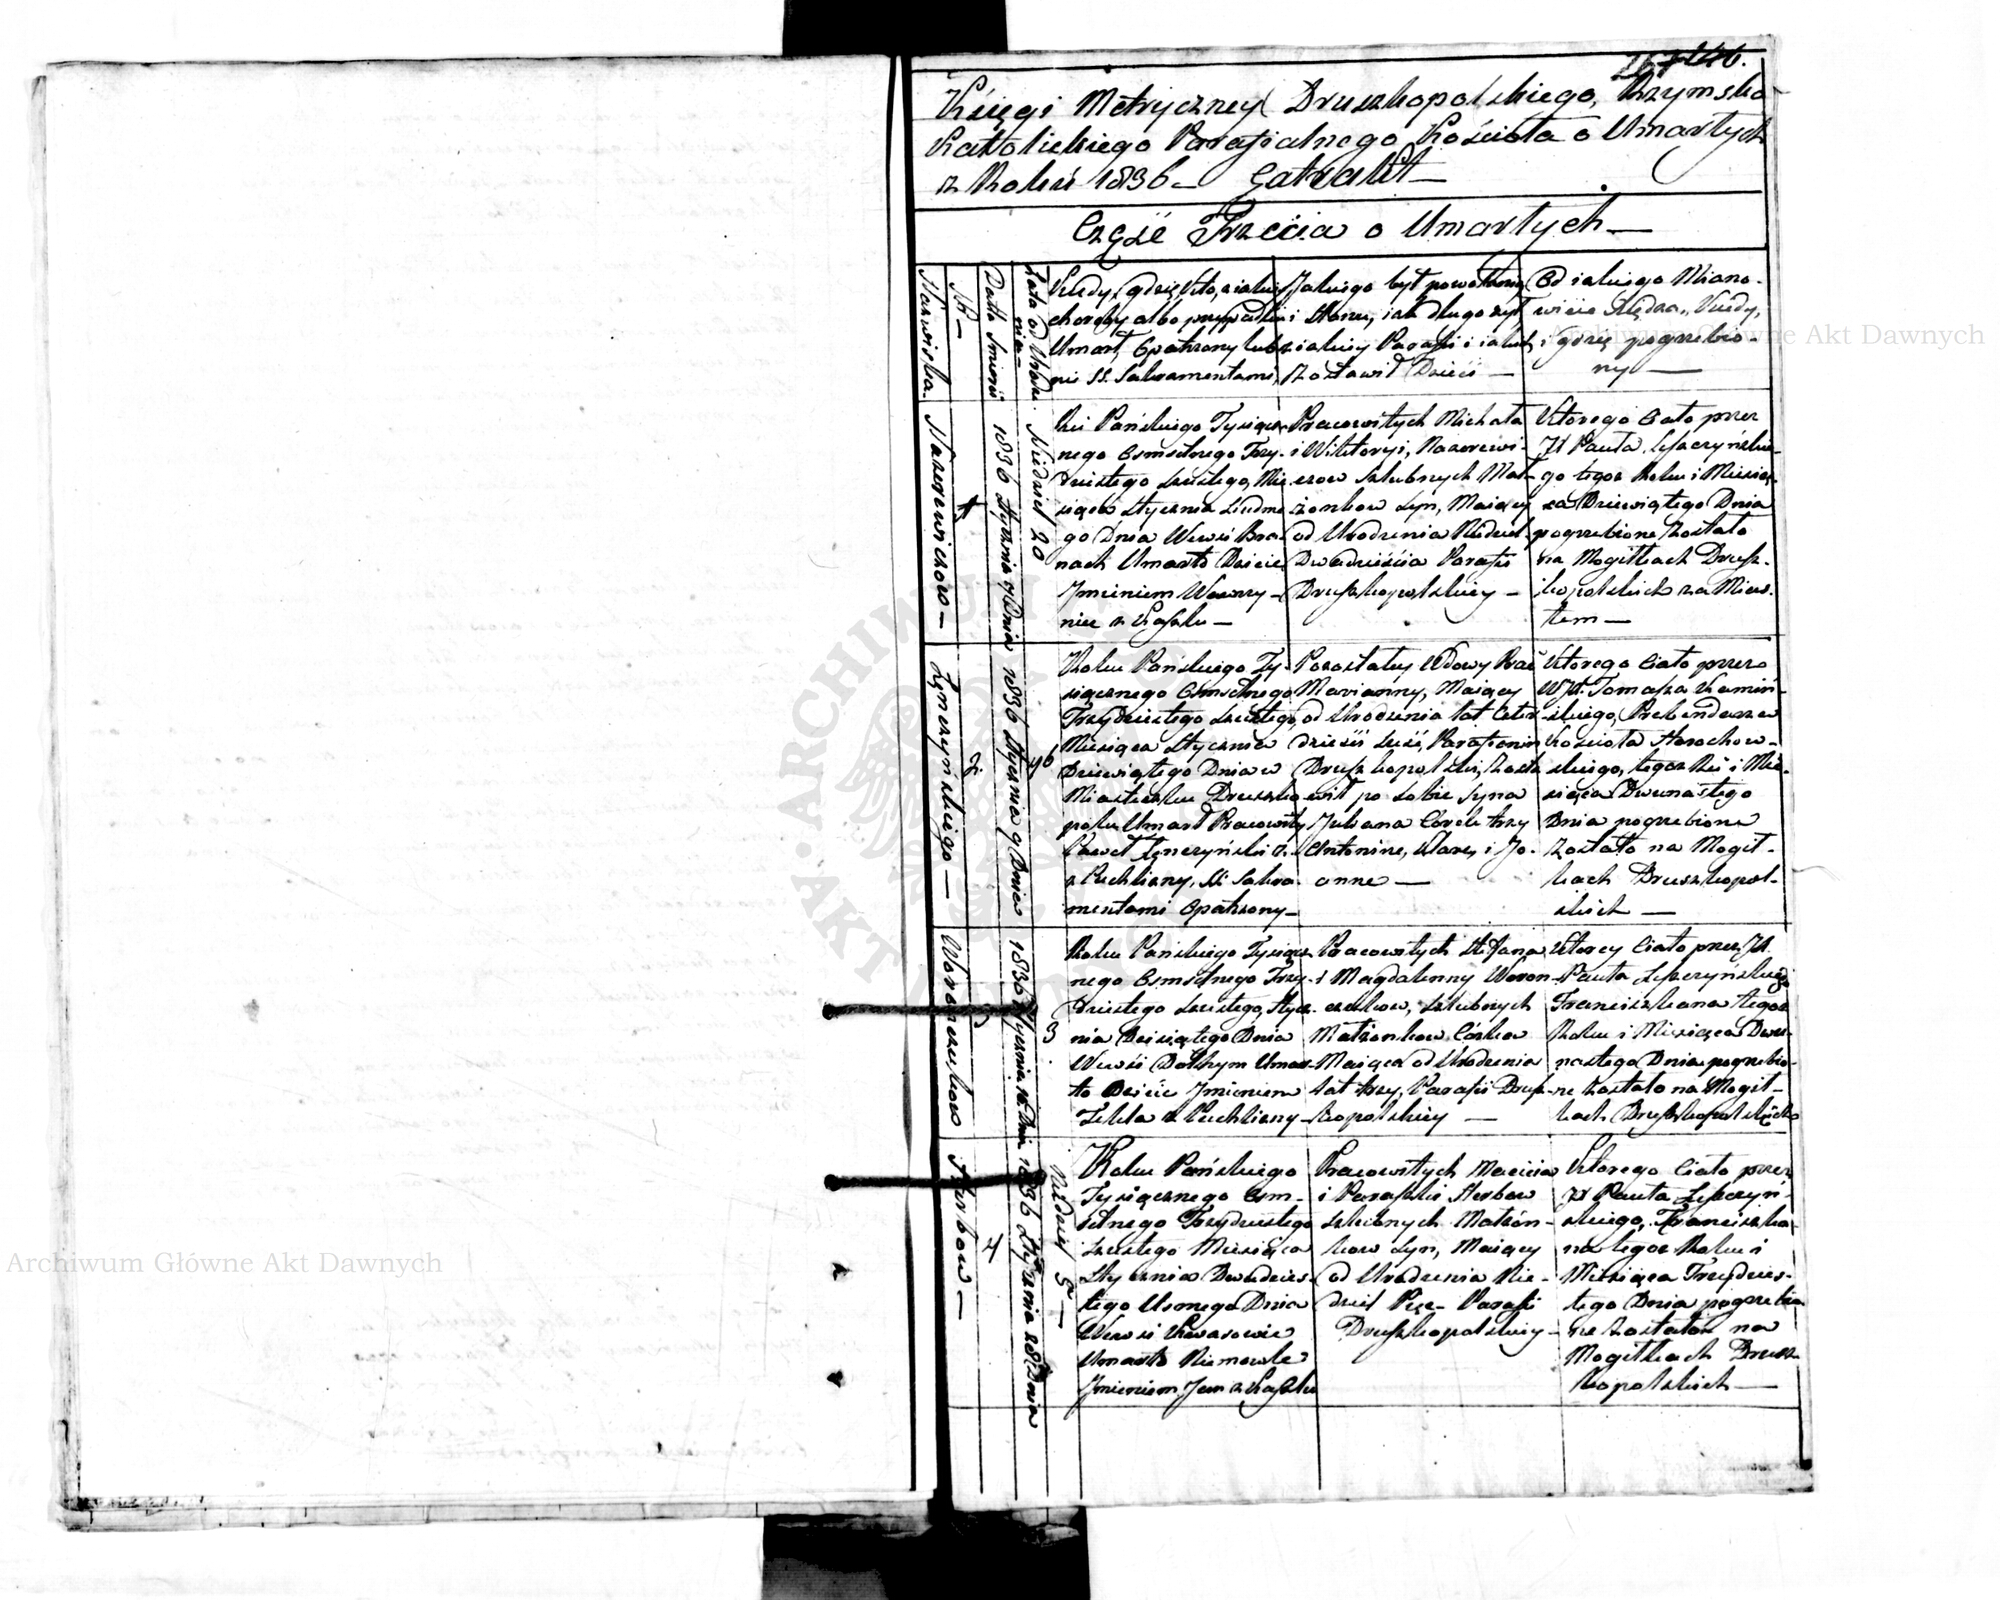 Księgi Metryczney Druszkopolskiego, Rzymsko
Katolickiego Parafialnego Kościoła o Umarłych
z Roku 1836
Część Trzecia o Umarłych
Nazwiska
N
Data Śmierci
Lata od Urodze
nia
Kiedy, gdzie, kto, z jakiey
choroby albo przypadku
Umarł, Opatrzony lub
nie SS. Sakramentami
Jakiego był powołania
i Stanu, jak długo żył
z jakiey Parafii i jakich
zostawił Dzieci
Od jakiego Miano-
wicie Xiędza, Kiedy,
i gdzie pogrzebio-
ny
1
1836 Stycznia 7 Dnia
Niedziel 20
Rku Pańskiego Tysiącz-
nego Osmsetnego Trzy-
dziestego szustego, Mie
siąca Stycznia Siudme
go Dnia Wewsi
nach Umarło Dziecie
Jmieniem Wawrzy-
niec z Kaszlu
Pracowitych Michała
i Wiktoryi,
Szlubnych Mał-
żonkow Syn, Maiący
od Urodzenia Niedziel
Dwadzieścia Parafii
Druszkopolskiey
Ktorego Ciało przez
JX Pawła Leszczyńskie-
go tegoż Roku i Miesią-
ca Dziewiątego Dnia
pogrzebione zostało
na Mogiłkach Drusz-
kopolskich za Mias-
tem
Łęnczyńskiego
2
1836 Stycznia 9 Dnia
46
Roku Pańskiego Ty-
siącznego Osmsetnego
Trzydziestego szustego,
Miesiąca Stycznia
Dziewiątego Dnia w
Miasteczku Druszko
polu Umarł Pracowity
Paweł Łęnczyński
z Puchliny, SS. Sakra-
mentami Opatrzony
Pozostałey Wdowy
Marianny, Maiący
od Urodzenia lat Czter-
dzieści sześć, Parafianin
Druszkopolski, Zosta
wił po sobie Syna
Juliana Córek trzy
Antoninę, Klarę, i Jo-
annę
Ktorego Ciało przez
WJX. Tomasza Kamiń-
skiego, Prebendarza
Kościoła Horochow-
skiego, tegoż Rku i Mie-
siąca Dwunastego
Dnia pogrzebione
Zostało na Mogił-
kach Druszkopol-
skich
Woronczukow
3
1836 Stycznia 10 Dnia
3
Roku Pańskiego Tysiącz
nego Osmsetnego Trzy-
dziestego szustego, Stycz-
nia Dziesiątego Dnia
Wewsi Umar-
ło Dziecie Jmieniem
Tekla z Puchliny
Pracowitych Stefana
i Magdalenny Woron-
czukow, szlubnych
Małżonkow Córka
Maiąca od Urodzenia
lat trzy, Parafii Drusz-
kopolskiey
Ktorey Ciało przez JX.
Pawła Leszczyńskiego
Franciszkana tegoż
Roku i Miesiąca Dwu-
nastego Dnia pogrzebio-
ne zostało na Mogił-
kach Druszkopolskich
4
1836 Stycznia 28 Dnia
Niedziel 5
Roku Pańskiego
Tysiącznego Osm-
setnego Trzydziestego
szustego Miesiąca
Stycznia Dwudzies-
tego Usmego Dnia
Wewsi Kwasowie
Umarło Niemowle
Jmieniem Jan z Kaszlu
Pracowitych Macieia
i Paraszki
szlubnych Małżon-
kow Syn, Maiący
od Urodzenia Nie-
dziel Pięć Parafii
Druszkopolskiey
Ktorego Ciało przez
JX Pawła Leszczyń-
skiego, Franciszka-
na tegoż Roku i
Miesiąca Trzydzies-
tego Dnia pogrzebio
ne zostało na
Mogiłkach Drusz-
kopolskich
Archiwum Główne Akt Dawnych
Archiwum Główne Akt Dawnych